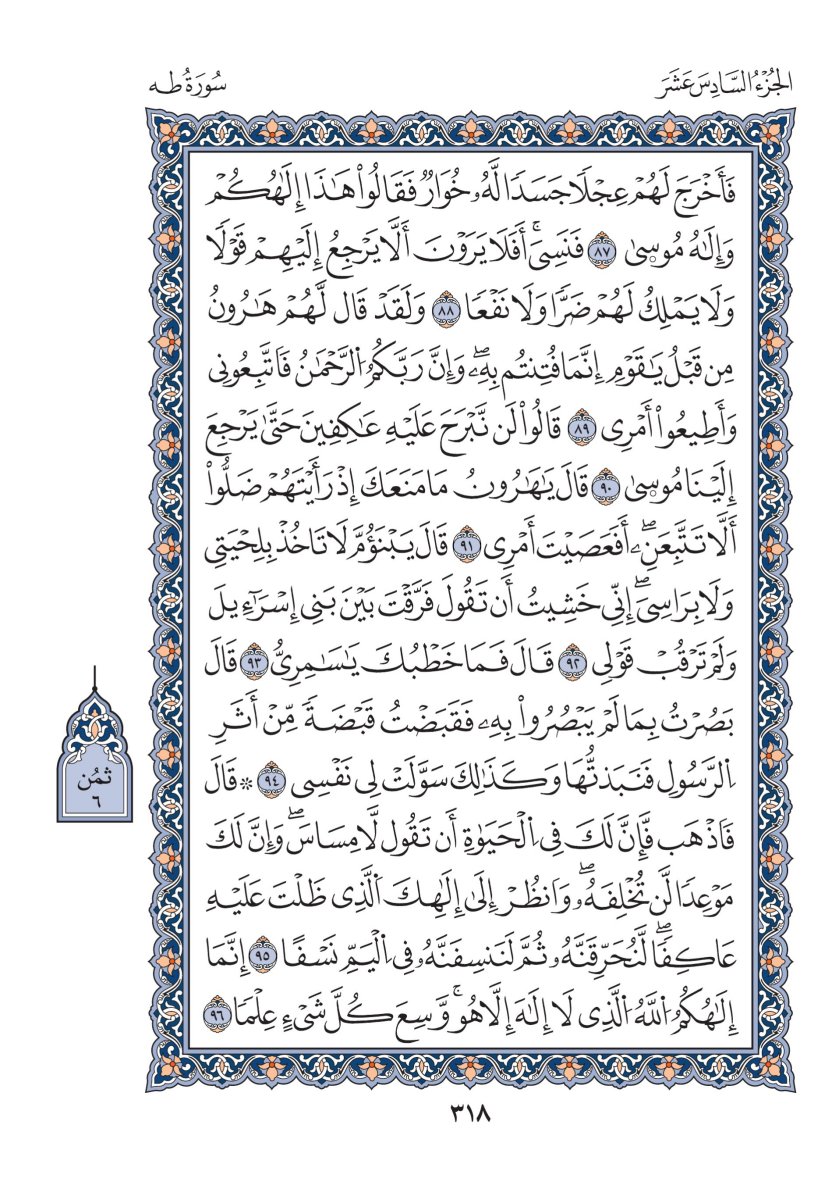 الجُزْءُ السَّادِسَ عَشَرَ
سُورَةُ طه
فَأَخْرَجَ لَهُمْ عِجْلَا جَسَدَا لَّهُۥ خُوَارٌ فَقَالُواْ هَٰذَا إِلَٰهُكُمْ
وَإِلَٰهُ مُوسِىٰ ٨٧ فَنَسِىَۚ أَفَلَا يَرَوْنَ أَلَّا يَرْجِعُ إِلَيْهِمْ قَوْلَا
وَلَا يَمْلِكُ لَهُمْ ضَرَّا وَلَا نَفْعَا ٨٨ وَلَقَدْ قَال لَّهُمْ هَٰرُونُ
مِن قَبْلُ يَٰقَوْمِ إِنَّمَا فُتِنتُم بِهِۦۖ وَإِنَّ رَبَّكُمُ اُ۬لرَّحْمَٰنُ فَاتَّبِعُونِى
وَأَطِيعُواْ أَمْرِى ٨٩ قَالُواْ لَن نَّبْرَحَ عَلَيْهِ عَٰكِفِينَ حَتَّىٰ يَرْجِعَ
إِلَيْنَا مُوسِىٰ ٩٠ قَالَ يَٰهَٰرُونُ مَا مَنَعَكَ إِذْ رَأَيْتَهُمْ ضَلُّواْ
أَلَّا تَتَّبِعَنِۦۖ أَفَعَصَيْتَ أَمْرِى ٩١ قَالَ يَبْنَؤُمَّ لَا تَاخُذْ بِلِحْيَتِى
وَلَا بِرَاسِىَۖ إِنِّى خَشِيتُ أَن تَقُولَ فَرَّقْتَ بَيْنَ بَنِى إِسْرَآءِيلَ
وَلَمْ تَرْقُبْ قَوْلِى ٩٢ قَالَ فَمَا خَطْبُكَ يَٰسَٰمِرِىُّ ٩٣ قَالَ
بَصُرْتُ بِمَا لَمْ يَبْصُرُواْ بِهِۦ فَقَبَضْتُ قَبْضَةَ مِّنْ أَثَرِ
اِ۬لرَّسُولِ فَنَبَذتُّهَا وَكَذَٰلِكَ سَوَّلَتْ لِى نَفْسِى ٩٤ ۞ قَالَ
فَاَذْهَب فَّإِنَّ لَكَ فِى اِ۬لْحَيَوٰةِ أَن تَقُول لَّا مِسَاسَۖ وَإِنَّ لَكَ
مَوْعِدَا لَّن تُخْلِفَهُۥۖ وَاَنظُرْ إِلَىٰ إِلَٰهِكَ اَ۬لَّذِى ظَلْتَ عَلَيْهِ
عَاكِفَاۖ لَّنُحَرِّقَنَّهُۥ ثُمَّ لَنَنسِفَنَّهُۥ فِى اِ۬لْيَمِّ نَسْفًا ٩٥ إِنَّمَا
إِلَٰهُكُمُ اُ۬للَّهُ اُ۬لَّذِى لَا إِلَٰهَ إِلَّا هُوَۚ وَّسِعَ كُلَّ شَىْءٍ عِلْمَا ٩٦
ثُمُن
٦
٣١٨